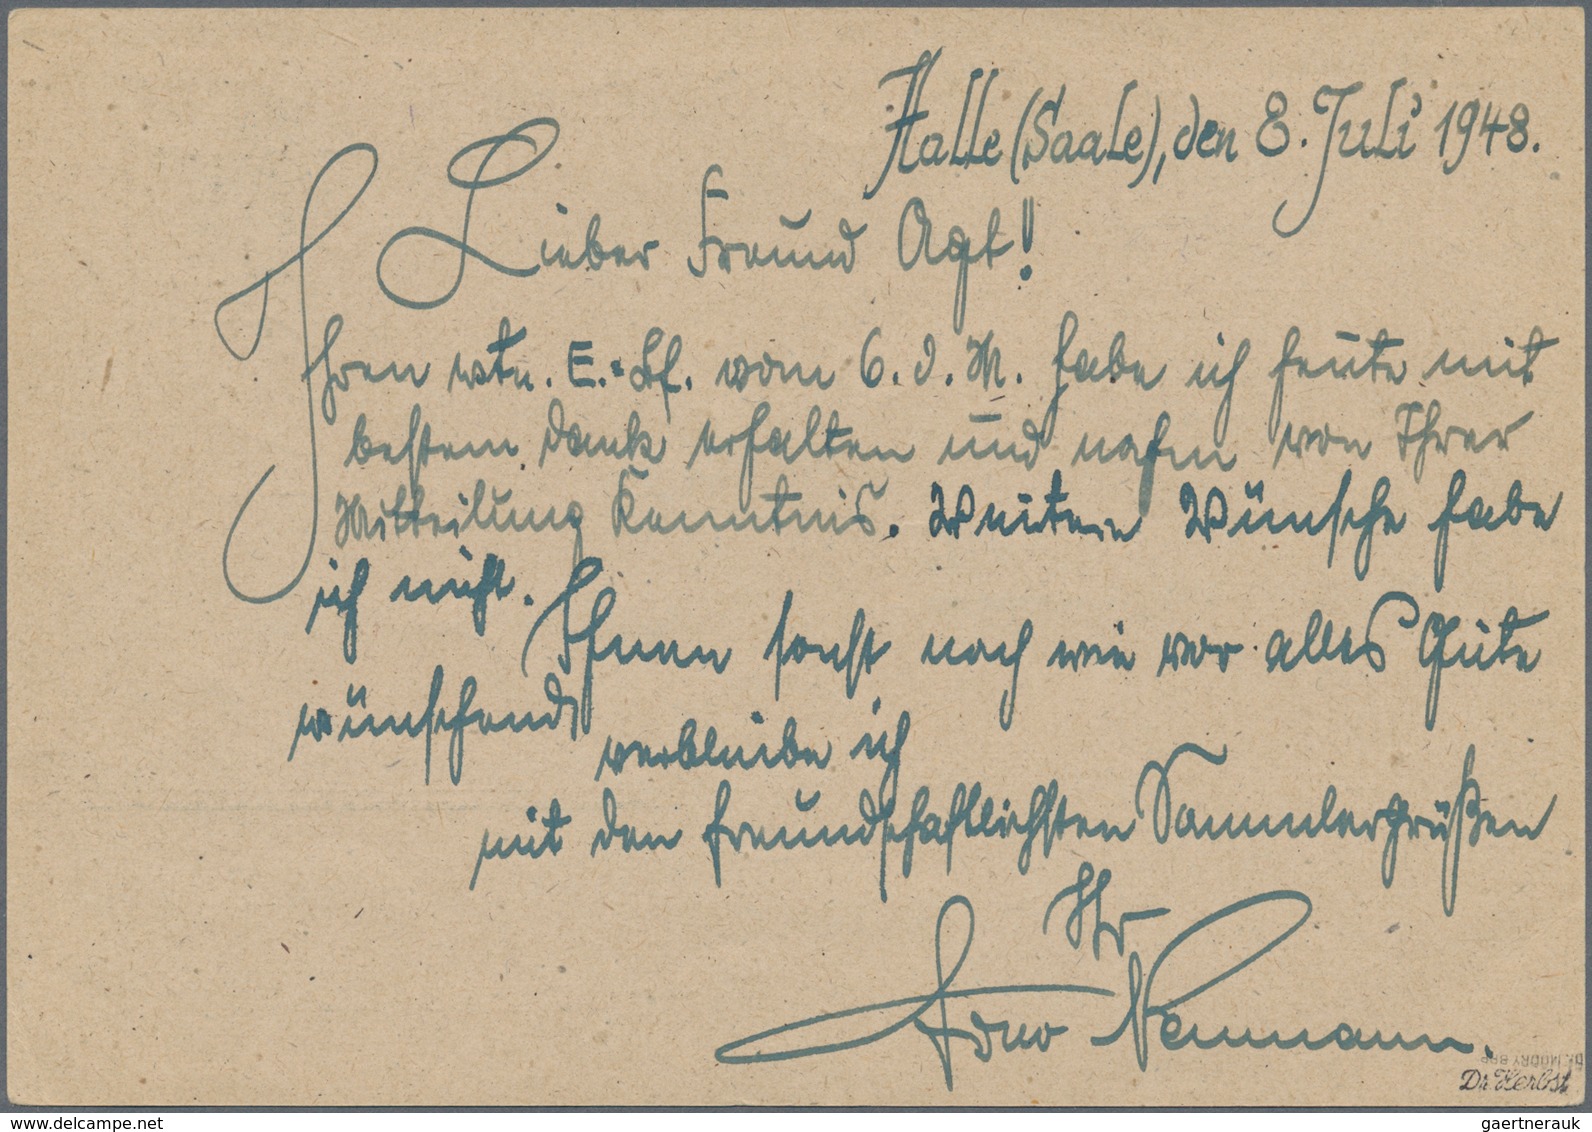 Halle (Saale), den 8. Juli 1948.
Lieber Freund Agt!
Ihren wtn. E.-Bf. vom 6. d. M. habe ich heute mit
bestem Dank erhalten und nahm von Ihrer
Mitteilung Kenntnis. Weitere Wünsche habe
ich nicht.
Ihnen sonst nach wie vor alles Gute
wünschend
verbleibe ich
mit den freundschaftlichsten Sammlergrüßen
Ihr
Arno Neumann.
Dr. MODRY BPP
Dr. Herbst
delcampe.net
gaertnerauk